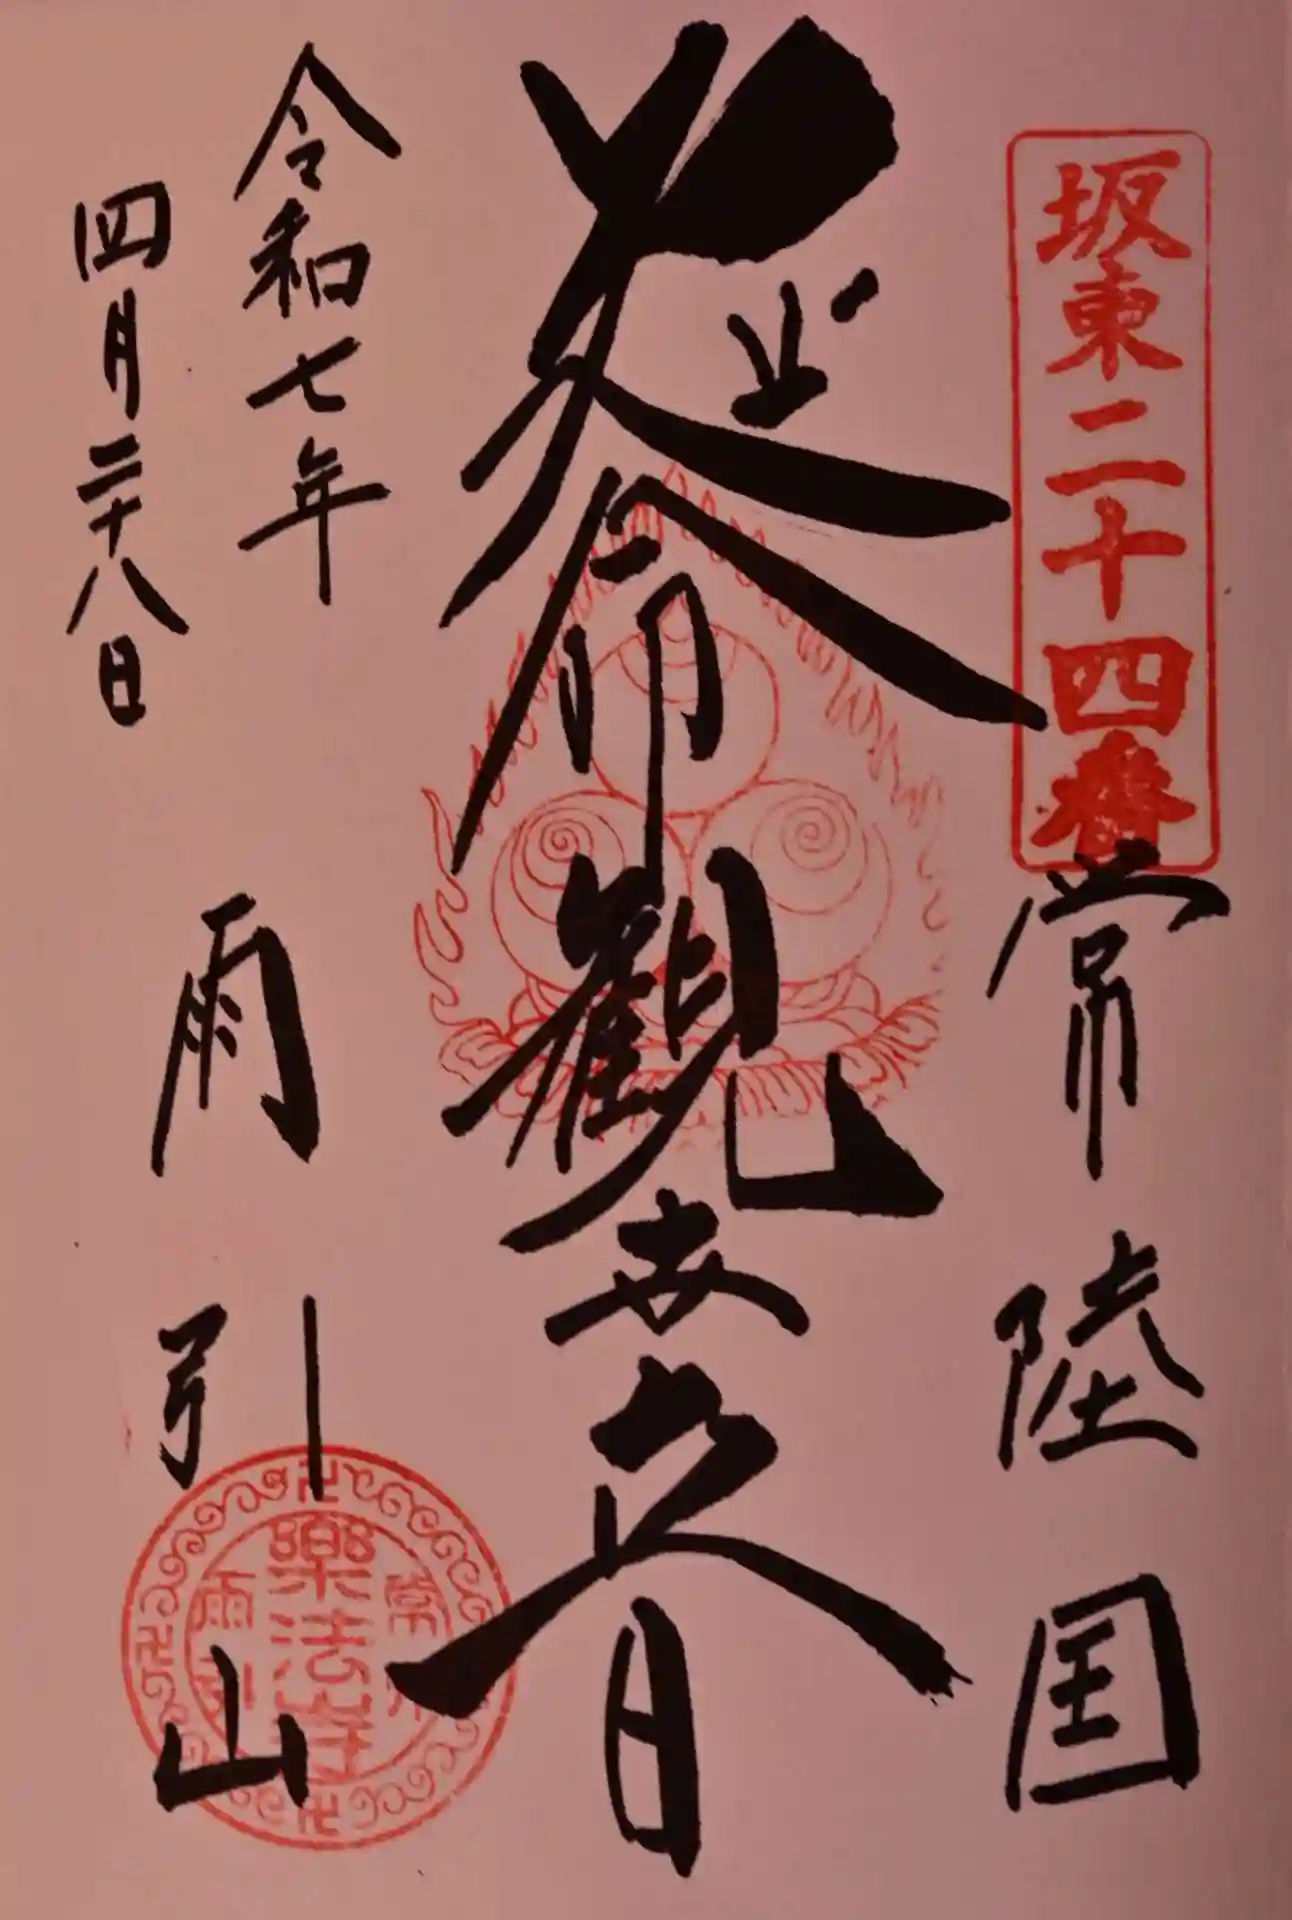 坂東二十四番
常陸国
延命観世音
令和七年
四月二十八日
雨引山
樂法寺
雨引